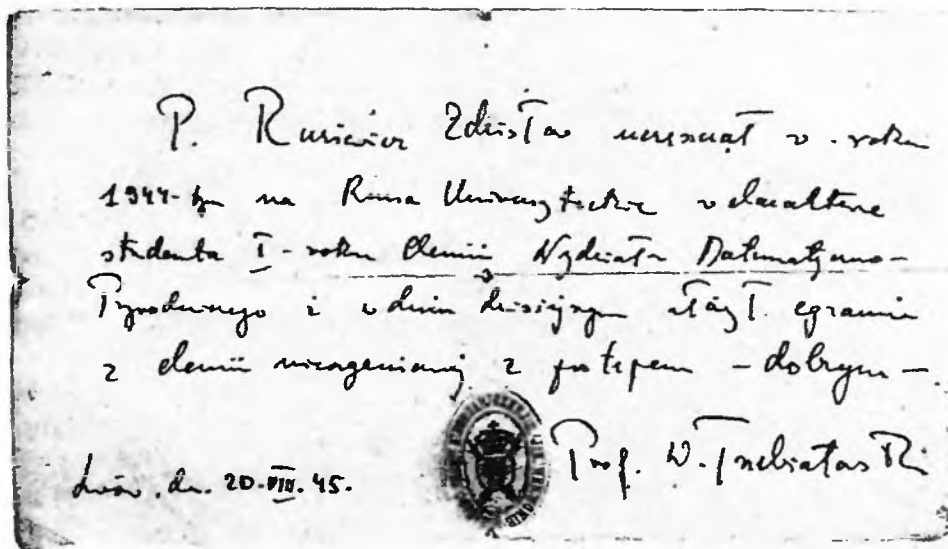 P. Rusiewicz Zdzisław uczęszczał w roku
1944-tym na Kursa Uniwersyteckie w charakterze
studenta I-roku Chemii Wydziału Matematyczno-
Przyrodniczego i w dniu dzisiejszym złożył egzamin
z chemii nieorganicznej z postępem - dobrym -
Prof. W. Trzebiatowski
Lwów. dn. 20.VIII.45.